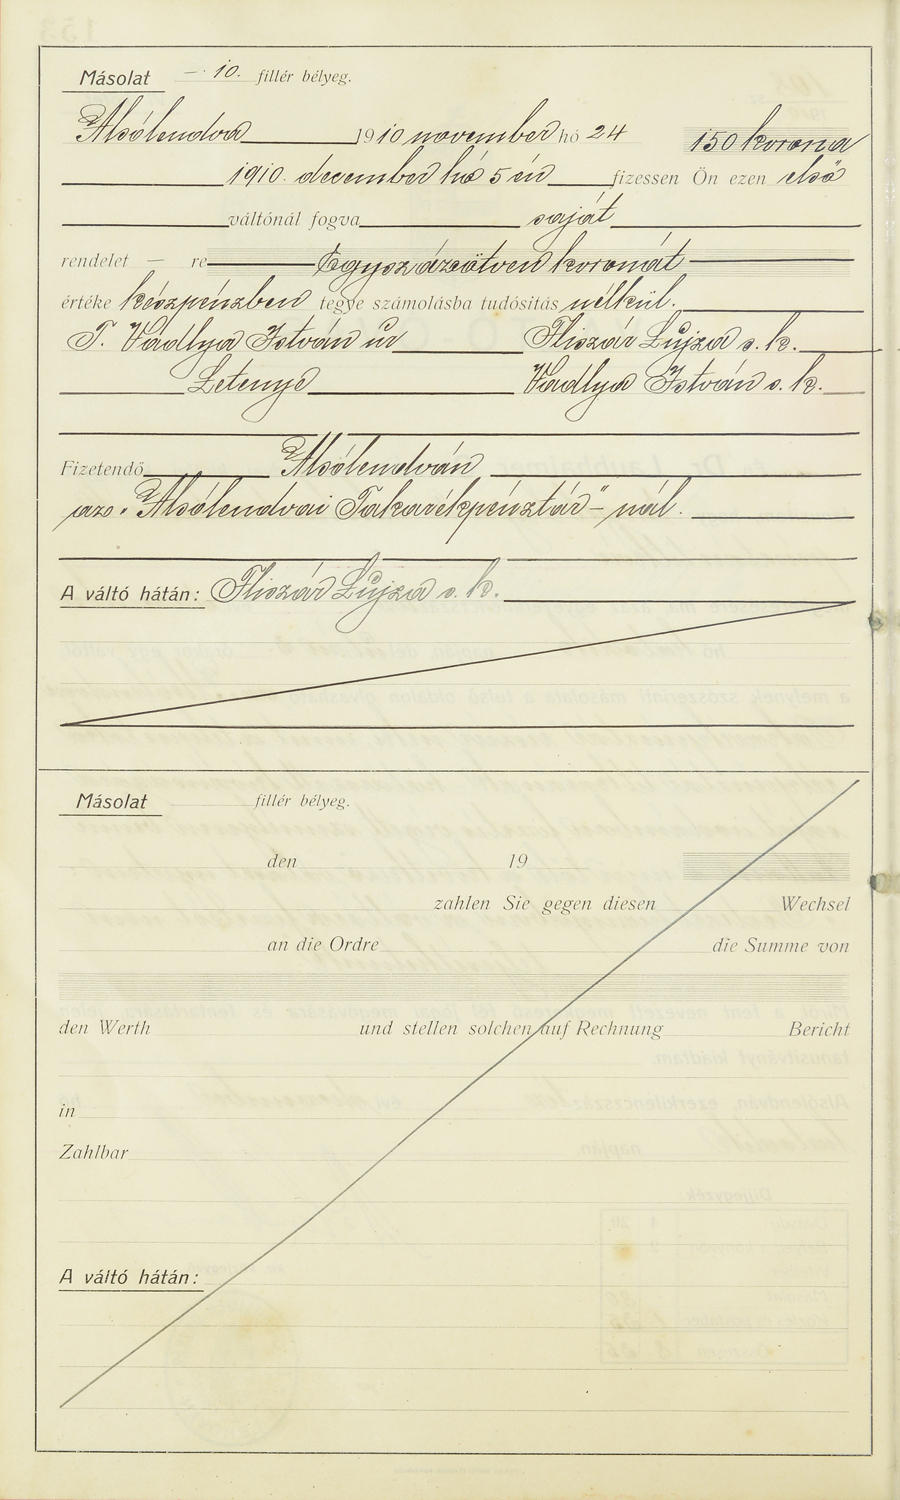 Másolat — 10. fillér bélyeg.
Alsólendva 1910 november hó 24 150 korona
1910. december hó 5 én fizessen Ön ezen első
váltónál fogva saját
rendelet — re Egyszázötven koronát
értéke készpénzben tegye számolásba tudósítás nélkül.
T. Vadlya István úr Fliszár Lujza s. k.
Letenye Vadlya István s. k.
Fizetendő Alsólendván
az „Alsólendvai Takarékpénztár"-nál.
A váltó hátán: Fliszár Lujza s. k.
Másolat fillér bélyeg.
den 19
zahlen Sie gegen diesen Wechsel
an die Ordre die Summe von
den Werth und stellen solchen auf Rechnung Bericht
in
Zahlbar
A váltó hátán: